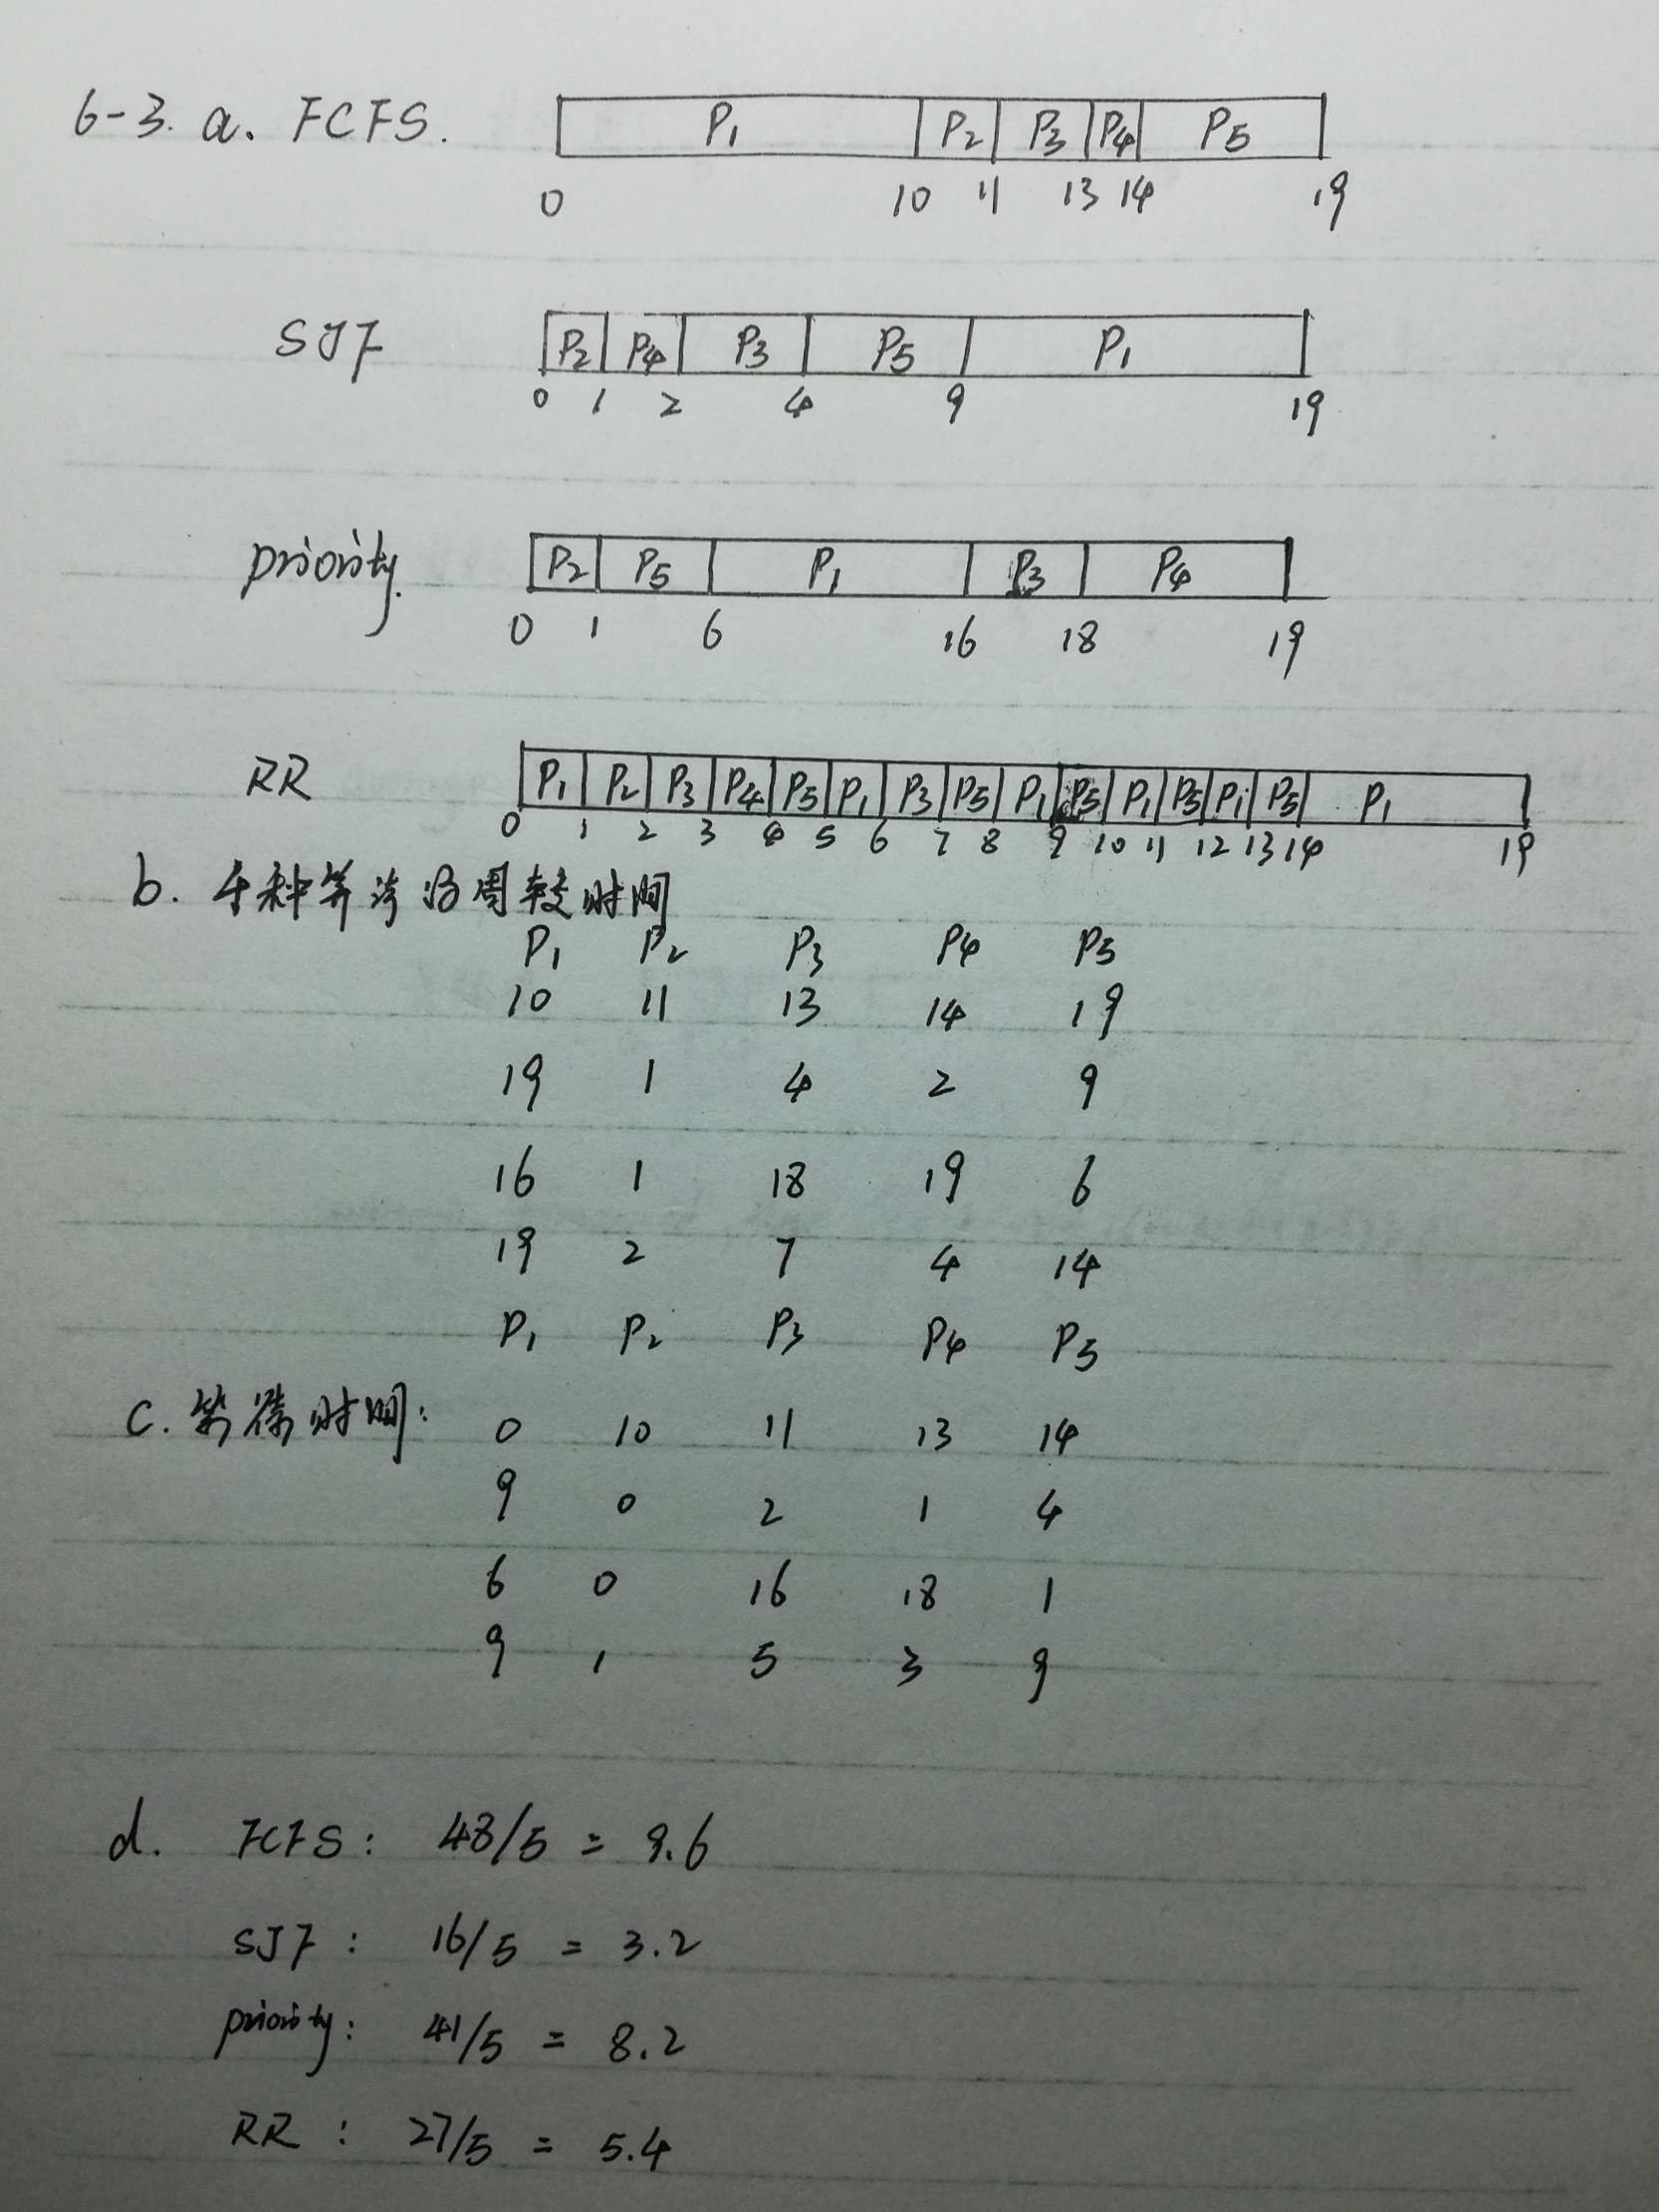 6-3. a. FCFS. P1 P2 P3 P4 P5
0 10 11 13 14 19
SJF P2 P4 P3 P5 P1
0 1 2 4 9 19
priority. P2 P5 P1 P3 P4
0 1 6 16 18 19
RR P1 P2 P3 P4 P5 P1 P3 P5 P1 P5 P1 P5 P1 P5 P1
0 1 2 3 4 5 6 7 8 9 10 11 12 13 14 19
b. 每种算法的周转时间
P1 P2 P3 P4 P5
10 11 13 14 19
19 1 4 2 9
16 1 18 19 6
19 2 7 4 14
P1 P2 P3 P4 P5
c. 等待时间: 0 10 11 13 14
9 0 2 1 4
6 0 16 18 1
9 1 5 3 9
d. FCFS: 48/5 = 9.6
SJF: 16/5 = 3.2
priority: 41/5 = 8.2
RR: 27/5 = 5.4